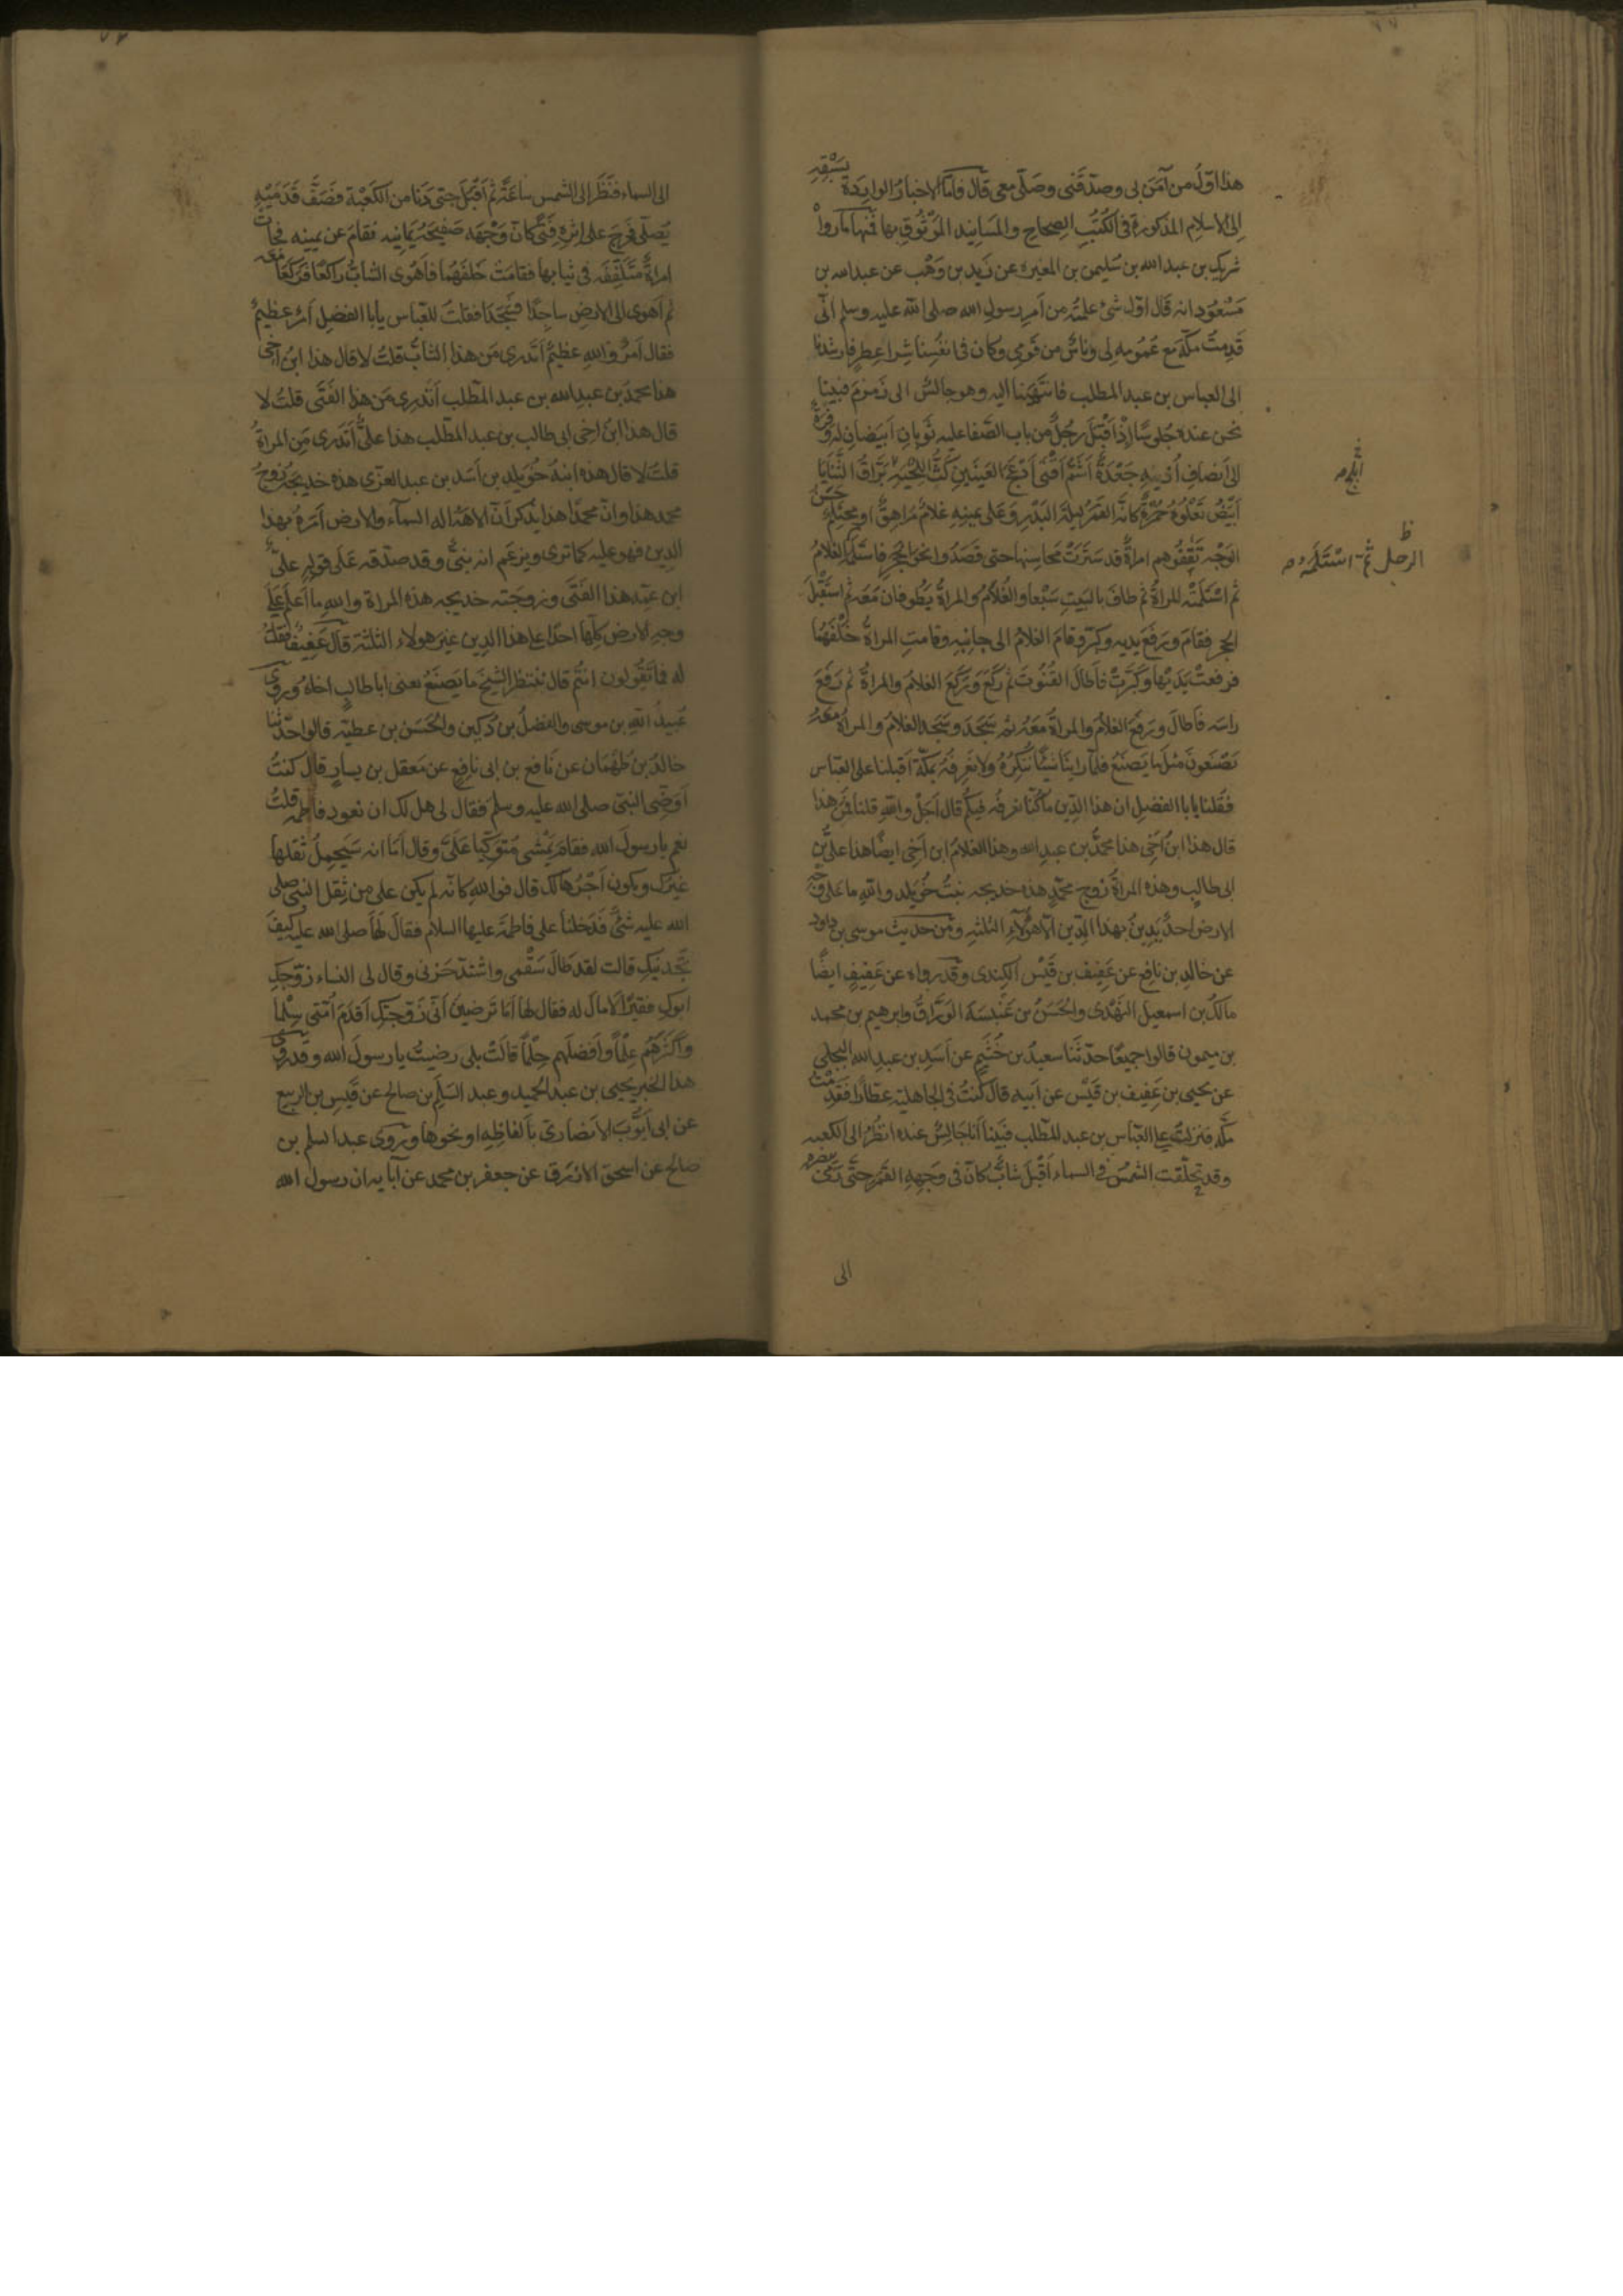 هذا اوّل من آمَنَ بى وصدّقنى وصَلّى معى قال فامّا الاخبار الواردة بسَبْقِهِ
الى الاسلام المذكورة فى الكُتُبِ الصِحاحِ والمَسانيد المَوْثُوقِ بها فمنها ما رواه
شريك بن عبد الله بن سُليمن بن المغيرة عن زيد بن وَهْب عن عبد الله بن
مَسْعُودٍ انه قال اوّل شئ علمتُه من اَمرِ رسول الله صلى الله عليه وسلم انّى
قَدِمتُ مكّة مع عُمُومه لى وناسٌ من قَومى وكان فى انفُسِنا شِرا عِطرٍ فارشدنا
الى العباس بن عبد المطلب فانتَهَينا اليه وهو جالسٌ الى زمزمَ فبينا
نحن عنده جُلوسًا اِذ اَقبَلَ رجُلٌ من باب الصَّفا عليه ثَوبانِ اَبيَضانِ له وَفرَةٌ
الى اَنصافِ اُذنَيهِ جَعْدَةٌ اَشَمُّ اَقنَى اَدْعَجُ العَينَينِ كَثُّ اللِّحْيَةِ بَرَّاقُ الثَّنايَا
ابلج
اَبيَضُ تَعْلُوهُ حُمْرَةٌ كانّه القمرُ ليلةَ البَدْرِ وَعَلى يمينِهِ غلامٌ مُراهِقٌ او محتلِمٌ حَسَنُ
الوَجْهِ تَقْفُوهم امراةٌ قد سَتَرَتْ مَحاسِنها حتى قصَدُوا نحوَ الحجَرِ فاستَلَمَ الغلامُ
الرجل ثمّ استَلَمَه
ثم اسْتَلَمَتْه المراةُ ثم طافَ بالبَيتِ سَبْعًا والغُلامُ والمراةُ يَطُوفانِ مَعَه ثم استَقْبَلَ
الحِجر فقامَ ورَفَعَ يديه وكبّر وقامَ الغلامُ الى جانِبِه وقامتِ المراةُ خَلْفَهُمَا
فرفعتْ يَدَيْها وكَبَّرَتْ فاَطالَ القُنُوتَ ثم ركَعَ وَرَكَعَ الغلامُ والمراةُ ثم رَفَعَ
راسَه فاَطالَ ورَفَعَ الغلامُ والمراةُ مَعَهُ ثم سَجَدَ وسَجَدَ الغلامُ والمراةُ مَعَهُ
يَصْنَعُونَ مثلَ ما يَصنَعُ فلمّا راينَا شيئًا نُنكِرُهُ ولا نَعرِفُهُ بمكّة اَقبلنا على العبّاس
فقُلنا يابا الفضل ان هذا الدّين ما كُنّا نعرفُه فيكم قال اَجَلْ واللهِ قلنا فمَنْ هذا
قال هذا ابنُ اَخِى هذا محمّدُ بن عبد الله وهذا الغلامُ ابن اَخِى ايضًا هذا علىُّ بن
ابى طالبٍ وهذه المراةُ زوج محمّدٍ هذه خديجه بنتُ خُوَيلد والله ما على وَجْهِ
الارض احدٌ يَدِينُ بهذا الدّين الّا هؤلآءِ الثلثةِ ومن حديث موسى بن داود
عن خالدِ بن نافع عن عَفيف بن قَيْس الكِندى وقد رواه عن عَفيفٍ ايضًا
مالكُ بن اسمعيل النَهْدى والحَسَنُ بن عَنْبسَةَ الوَرّاقُ وابرهيم بن محمد
بن ميمون قالوا جميعًا حدّثَنا سعيدُ بن خُثَيم عن اَسَدِ بن عبد الله البجلى
عن يحيى بن عَفيف بن قَيْس عن اَبيه قال كنتُ فى الجاهليّة عطّارًا فقَدِمْتُ
مكّة فنزلتُ على العبّاس بن عبد المطلب فبَينا اَنا جالسٌ عنده انظُرُ الى الكعبه
وقد تحَلّقت الشمسُ فى السماء اَقبَلَ شابٌّ كانّ فى وَجهِهِ القمر حتّى رَمَى ببصره
الى
الى السماء فنَظَرَ الى الشمس ساعةً ثم اَقبَلَ حتى دَنا من الكَعْبَة فصَفَّ قَدَمَيْهِ
يُصَلّى فخَرجَ على اِثرِهِ فتًى كانّ وَجْهَه صَفيحَةٌ يَمانيه فقامَ عن يمينه فجات
امراةٌ متَلَفِّفَه فى ثيابها فقامَتْ خَلفَهُما فاَهْوَى الشابُّ راكعًا فركَعَا معه
ثم اَهوى الى الارض ساجِدًا فسَجَدَا فقلتُ للعَبّاس يابا الفضل اَمرٌ عظيمٌ
فقال اَمرٌ والله عظيمٌ اَتَدرى مَن هذا الشابُّ قلتُ لا قال هذا ابنُ اَخِى
هذا محمدُ بن عبد الله بن عبد المطّلب اَتَدرِى مَن هذا الفَتَى قلتُ لا
قال هذا ابنُ اخِى ابى طالب بن عبد المطّلب هذا علىٌّ اَتَدرى مَنِ المراةُ
قلتُ لا قال هذه ابنةُ خُوَيلد بن اَسَد بن عبد العزّى هذه خديجَةُ زوجُ
محمد هذا وانّ محمدًا هذا يَذكر انّ الاهَهُ اله السمآء والارض اَمَرَهُ بهذا
الدِين فهو عليه كما ترى ويزعَم انه نبىٌّ وقد صدّقه عَلَى قوله علىٌّ
ابن عمّه هذا الفَتَى وزوجته خديجه هذه المراة واللهِ ما اَعلَم عَلَى
وجهِ الارض كلِّها احدًا على هذا الدين غير هولاء الثلثة قال عَفِيفٌ فقلتُ
له فما تَقُولون انتُم قال نَنتظرُ الشيخَ ما يَصنَعُ يعنى ابا طالبٍ اخاهُ وروى
عُبيدُ الله بن موسى والفضلُ بن دُكين والحَسَن بن عطيّه قالوا حدّثنا
خالدُ بن طَهْمَان عن نَافع بن ابى نافعٍ عن مَعقل بن يسارٍ قال كنتُ
اُوَضّى النبىّ صلى الله عليه وسلم فقال لى هل لك ان نعود فاطمه قلتُ
نعم يا رسولَ الله فقام يَمْشى مُتوكّيًا عَلَىَّ وقال اَمَا انه سَيَحمِلُ ثقلها
غيرُك ويكون اَجْرُها لك قال فوالله كانّه لم يكن على من ثِقل النبى صلى
الله عليه شئٌ فدَخلنا على فاطمَة عليها السلام فقال لَها صلى الله عليه كيفَ
تَجِدينَكِ قالت لقد طَالَ سَقْمى واشتدّ حَزَنى وقال لى النساء زَوَّجكِ
ابوكِ فقيرًا لا مالَ له فقال لها اَمَا تَرضين اَنّى زَوَّجتكِ اَقدَمَ اُمّتى سِلْما
واكثَرَهُم عِلْمًا واَفضلَهم حِلْمًا قالَتْ بلى رضيتُ يا رسولَ الله وقد روى
هذا الخبر يحيى بن عبد الحميد وعبد السّلم بن صالح عن قَيس بن الربيع
عن ابى اَيّوُب الانصَارى بالفاظِهِ او نحوها وروَى عبد السلم بن
صالح عن اسحق الازرق عن جعفر بن محمد عن آبايه ان رسول الله